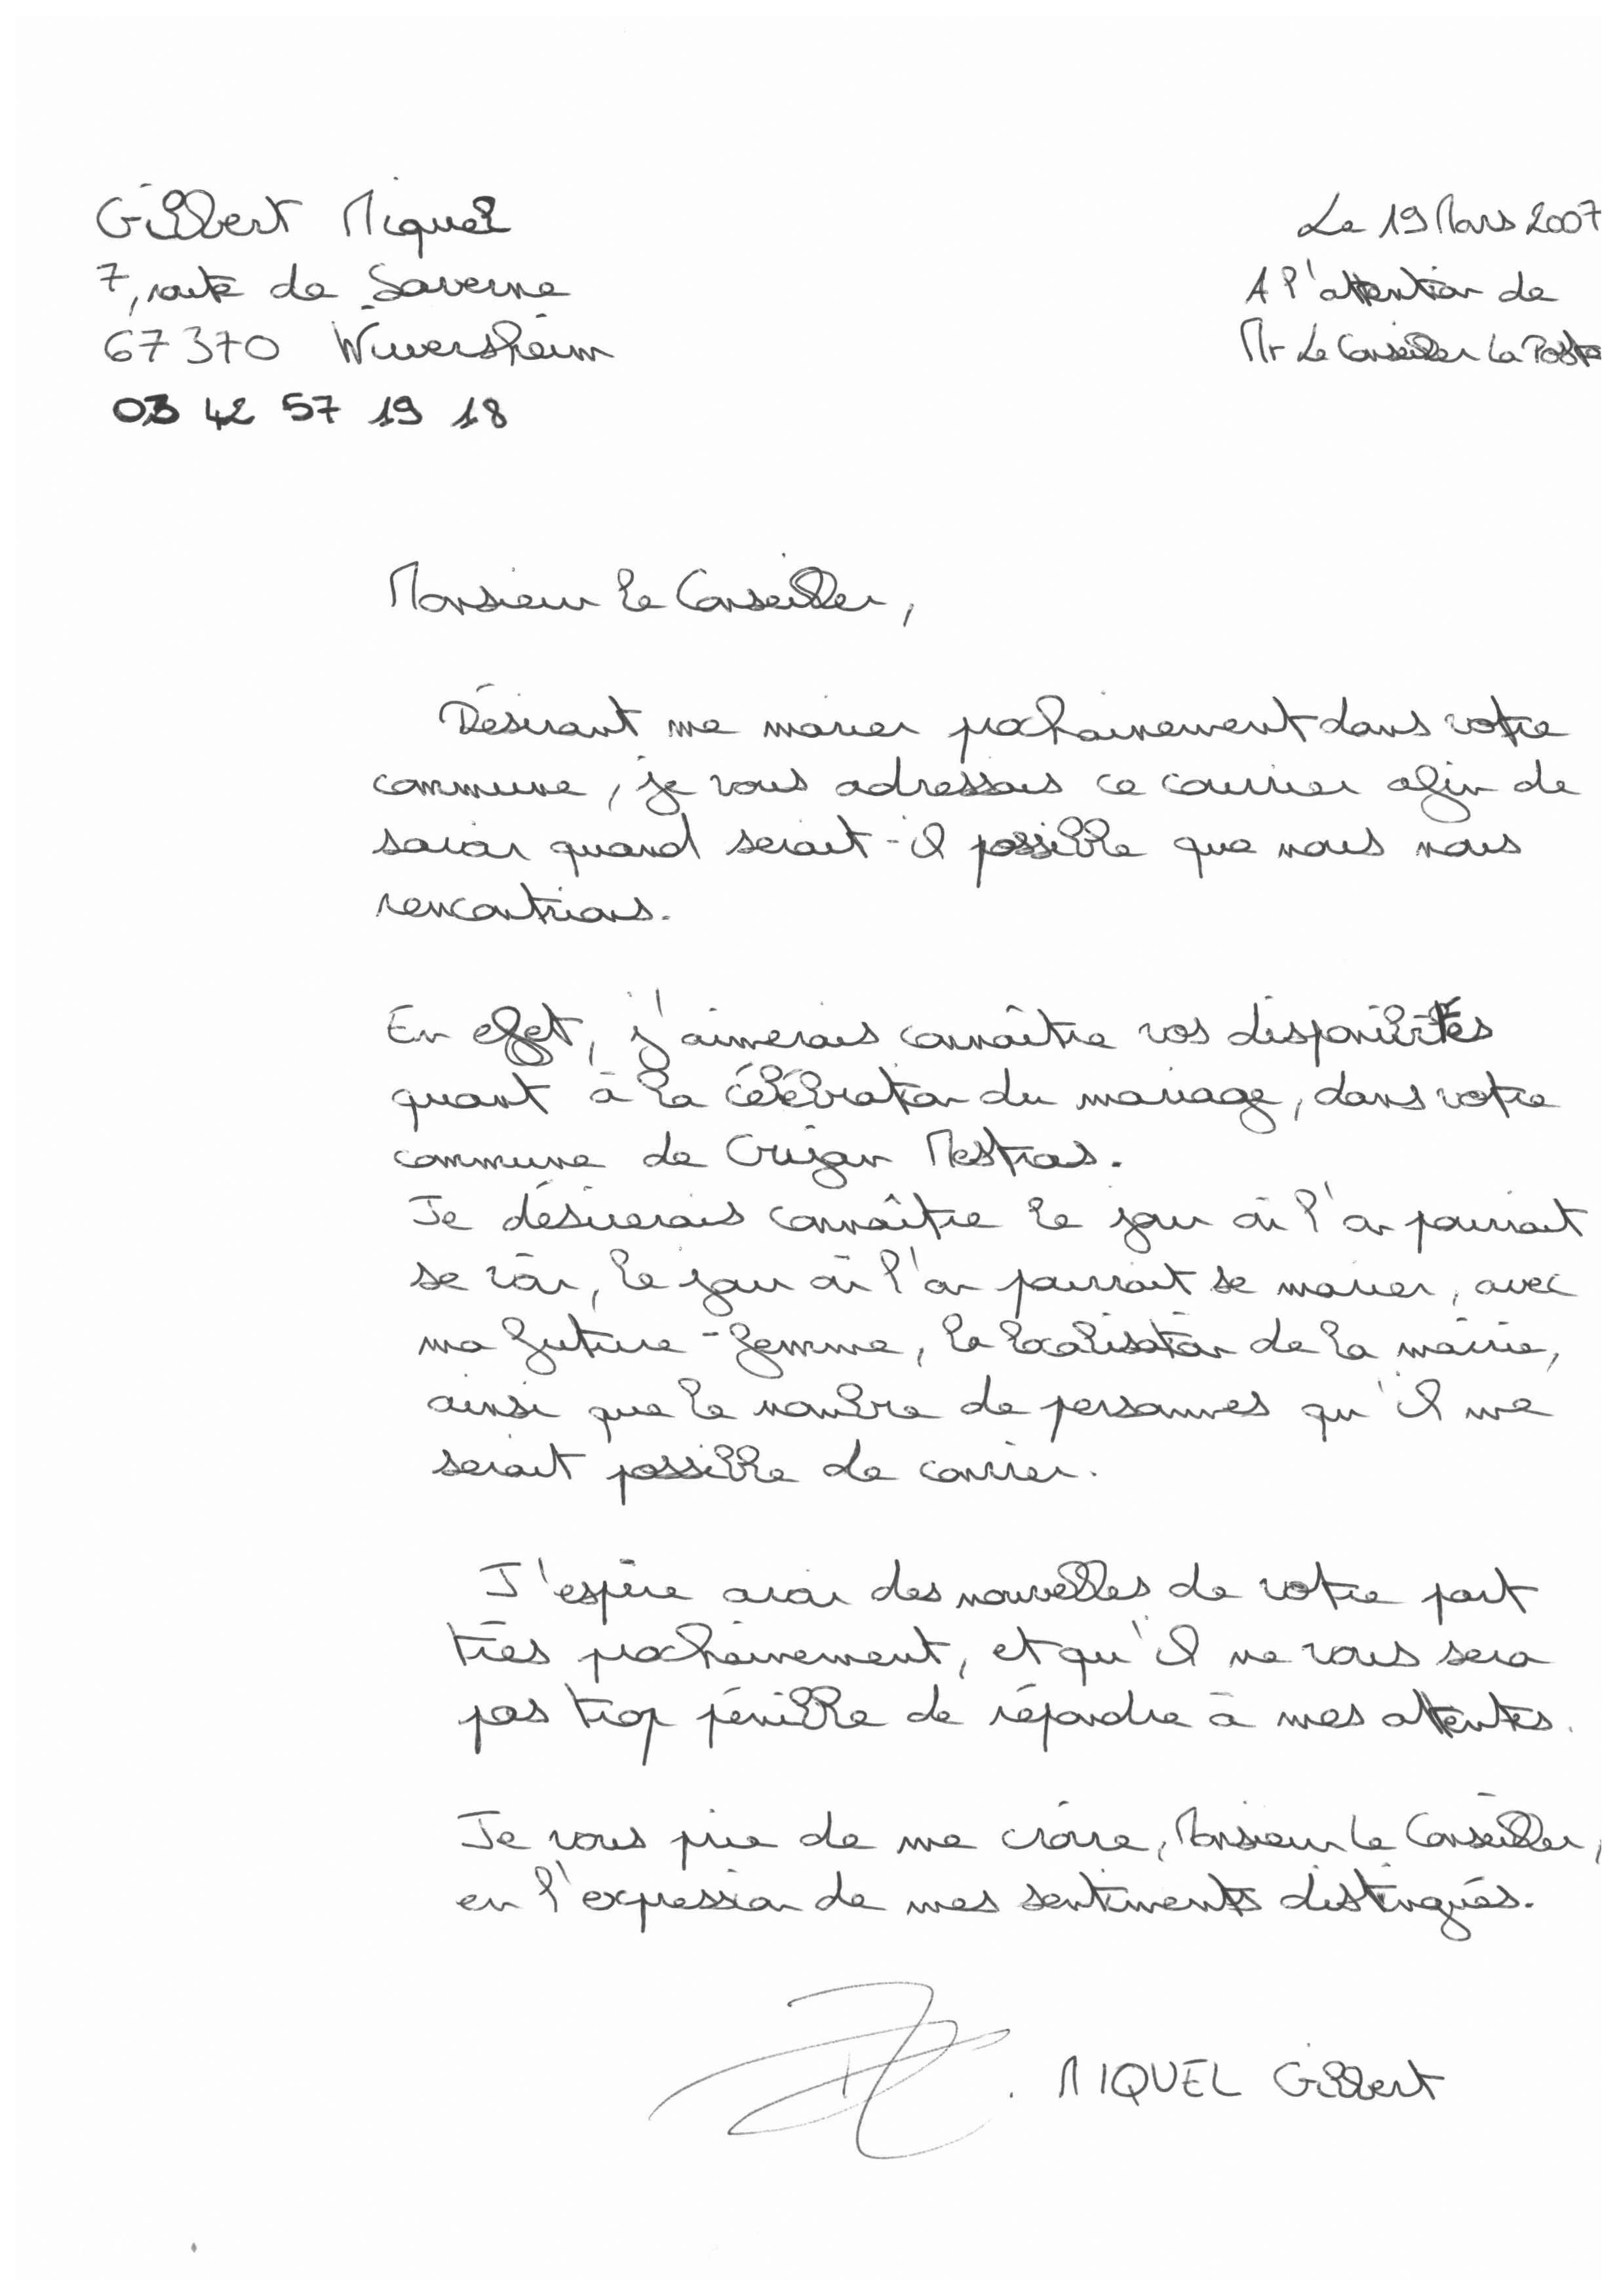 Gilbert Miquel
7, route de Saverne
67370 Wiwersheim
03 42 57 19 18
Le 19 Mars 2007
A l'attention de
Mr Le Conseiller La Poste
Monsieur le Conseiller,
Désirant me marier prochainement dans votre
commune, je vous adressais ce courrier afin de
savoir quand serait-il possible que nous nous
rencontrions.
En effet, j'aimerais connaître vos disponibilités
quant à la célébration du mariage, dans votre
commune de Gujan Mestras.
Je désirerais connaître le jour où l'on pourrait
se voir, le jour où l'on pourrait se marier, avec
ma future-femme, la localisation de la mairie,
ainsi que le nombre de personnes qu'il me
serait possible de convier.
J'espère avoir des nouvelles de votre part
très prochainement, et qu'il ne vous sera
pas trop pénible de répondre à mes attentes.
Je vous prie de me croire, Monsieur Le Conseiller,
en l'expression de mes sentiments distingués.
MIQUEL Gilbert